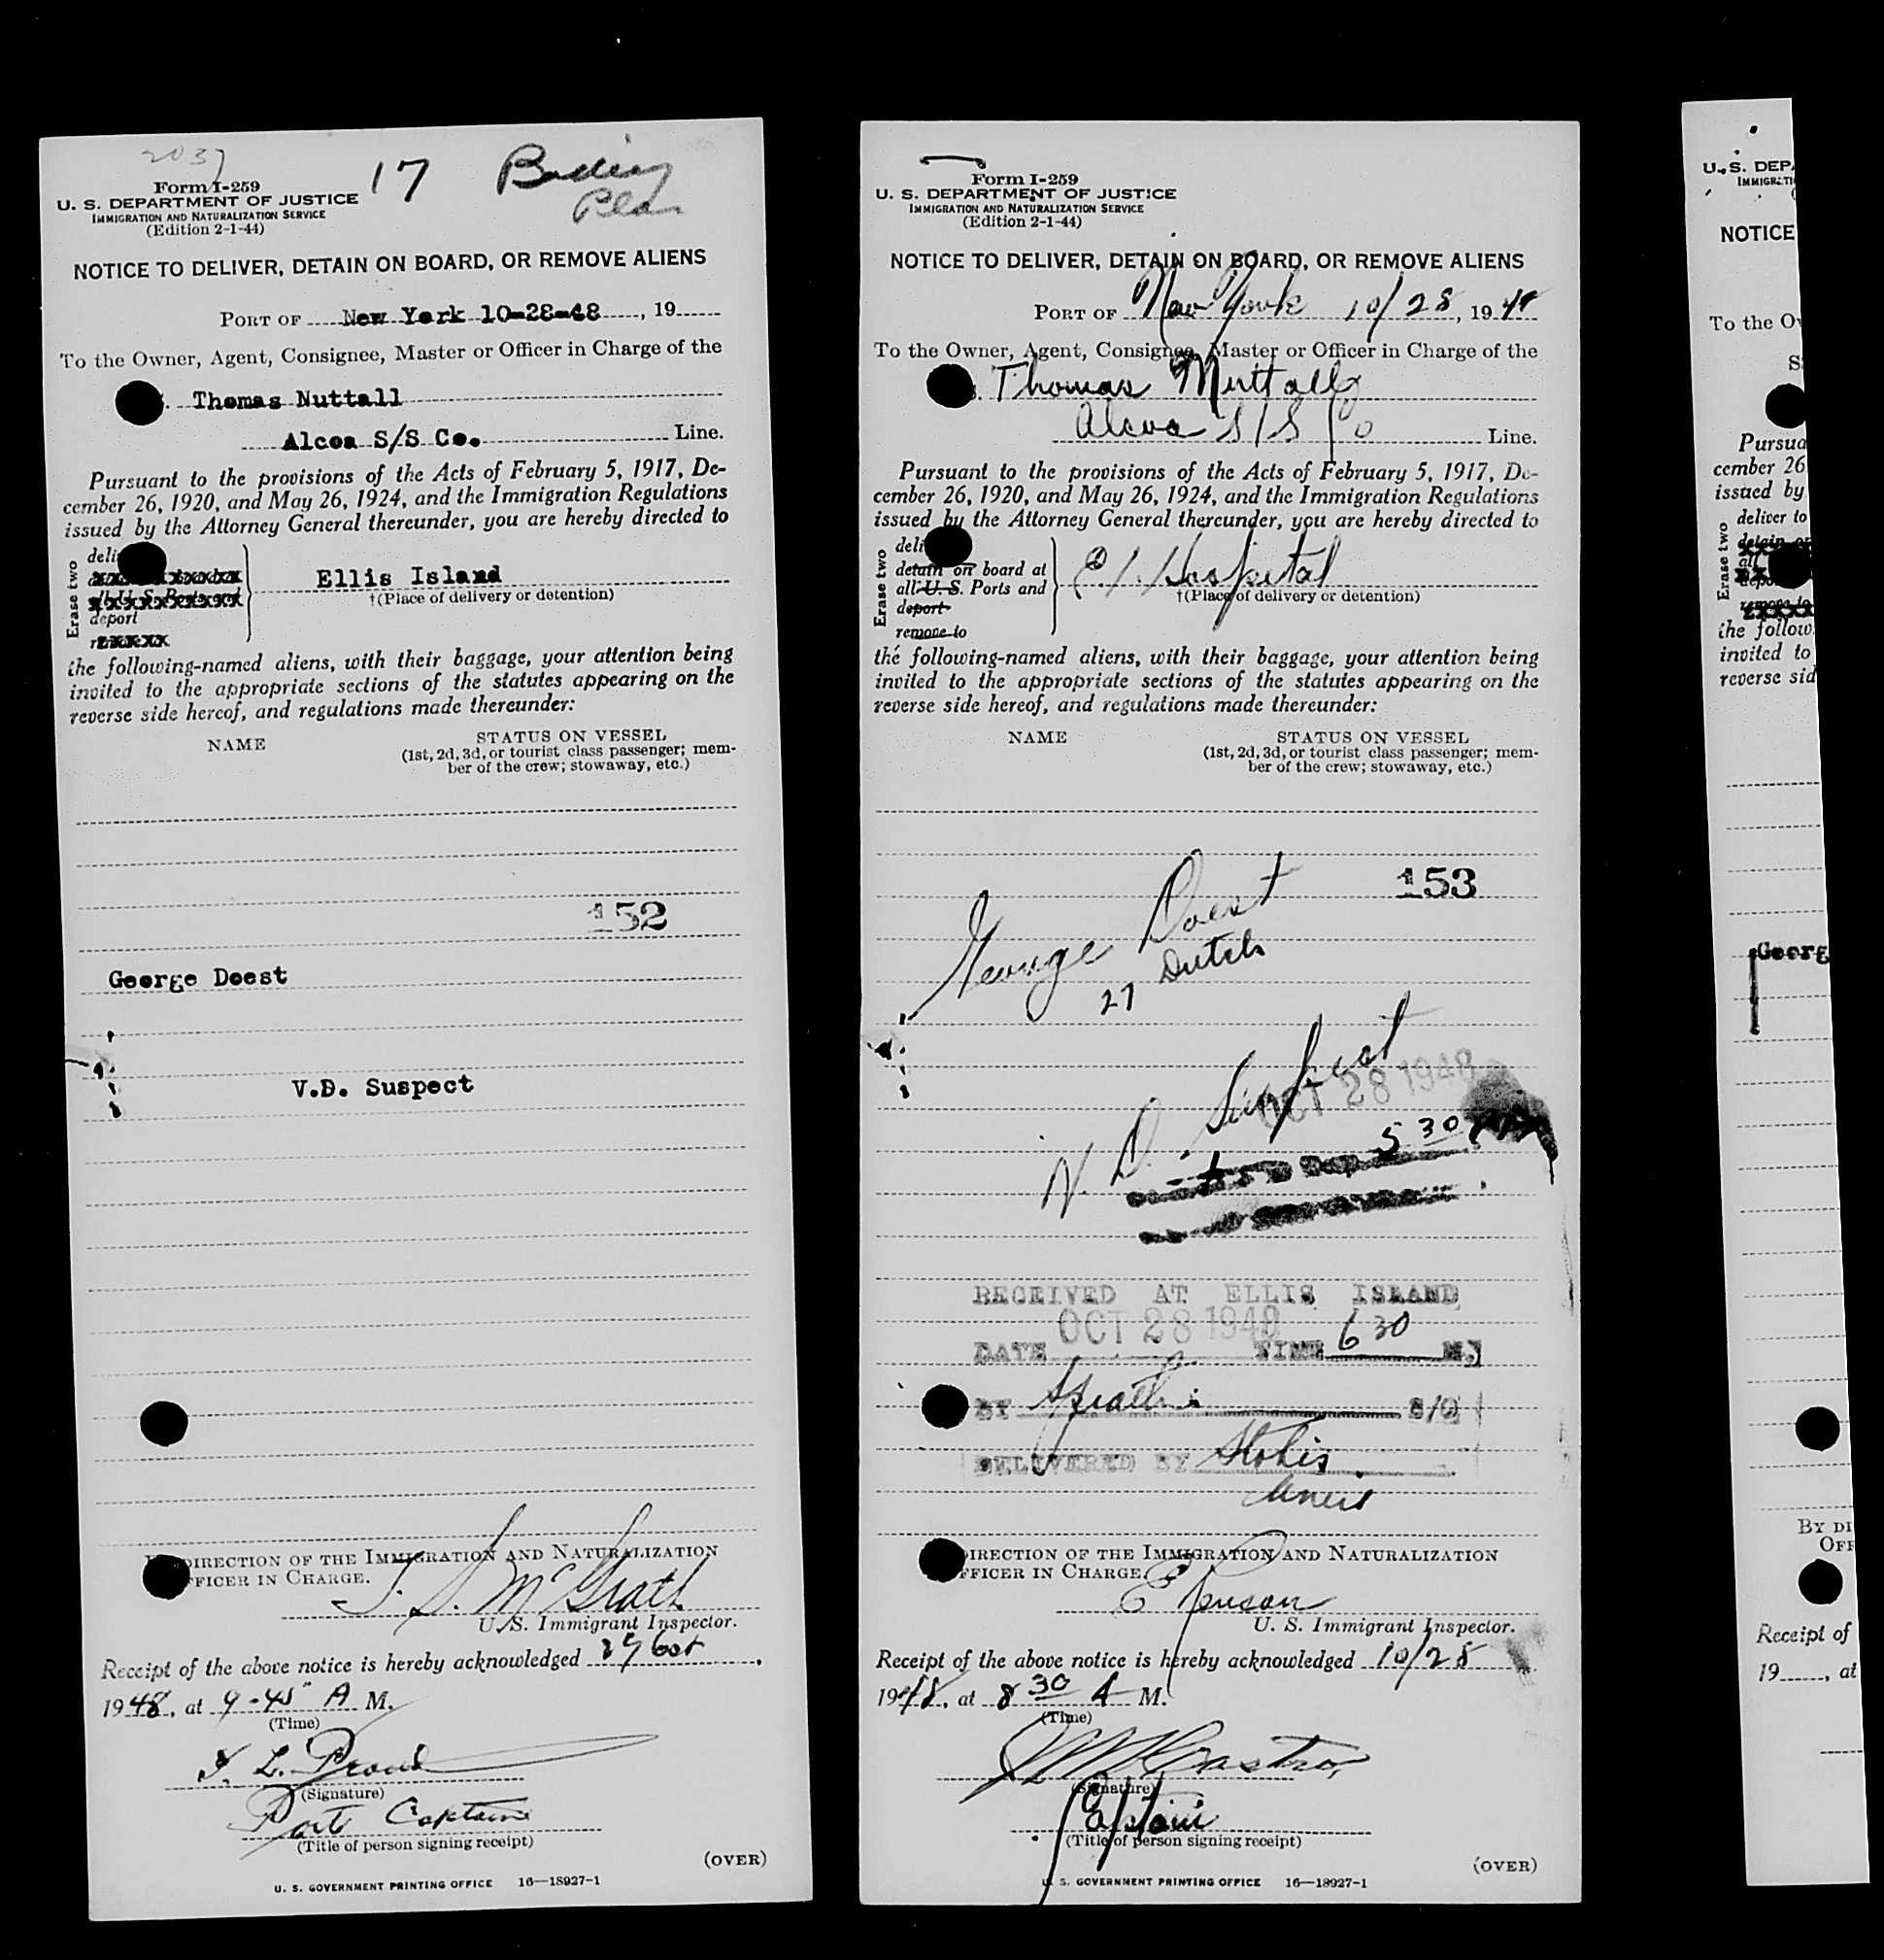 2037
17
Form I-259
U. S. DEPARTMENT OF JUSTICE
IMMIGRATION AND NATURALIZATION SERVICE
(Edition 2-1-44)
NOTICE TO DELIVER, DETAIN ON BOARD, OR REMOVE ALIENS
PORT OF New York 10-28-48, 19
To the Owner, Agent, Consignee, Master or Officer in Charge of the
Thomas Nuttall
Alcoa S/S Co. Line.
Pursuant to the provisions of the Acts of February 5, 1917, De-
cember 26, 1920, and May 26, 1924, and the Immigration Regulations
issued by the Attorney General thereunder, you are hereby directed to
Erase two
deli
deport
Ellis Island
†(Place of delivery or detention)
the following-named aliens, with their baggage, your attention being
invited to the appropriate sections of the statutes appearing on the
reverse side hereof, and regulations made thereunder:
NAME
STATUS ON VESSEL
(1st, 2d, 3d, or tourist class passenger; mem-
ber of the crew; stowaway, etc.)
152
George Doest
V.D. Suspect
DIRECTION OF THE IMMIGRATION AND NATURALIZATION
FFICER IN CHARGE.
J. S. McGrath
U. S. Immigrant Inspector.
Receipt of the above notice is hereby acknowledged 29 Oct
1948, at 9-45 A M.
(Time)
(Signature)
Port Captain
(Title of person signing receipt)
(OVER)
U. S. GOVERNMENT PRINTING OFFICE 16—18927-1
Form I-259
U. S. DEPARTMENT OF JUSTICE
IMMIGRATION AND NATURALIZATION SERVICE
(Edition 2-1-44)
NOTICE TO DELIVER, DETAIN ON BOARD, OR REMOVE ALIENS
PORT OF New York 10/28, 1948
To the Owner, Agent, Consignee, Master or Officer in Charge of the
Thomas Nuttall
Alcoa S/S Co Line.
Pursuant to the provisions of the Acts of February 5, 1917, De-
cember 26, 1920, and May 26, 1924, and the Immigration Regulations
issued by the Attorney General thereunder, you are hereby directed to
Erase two
deli
detain on board at
all U. S. Ports and
deport
remove to
E. I. Hospital
†(Place of delivery or detention)
the following-named aliens, with their baggage, your attention being
invited to the appropriate sections of the statutes appearing on the
reverse side hereof, and regulations made thereunder:
NAME
STATUS ON VESSEL
(1st, 2d, 3d, or tourist class passenger; mem-
ber of the crew; stowaway, etc.)
153
George Doest
Dutch
27
V. D. Suspect
OCT 28 1948
5 30
RECEIVED AT ELLIS ISLAND
OCT 28 1948
DATE TIME 6 30 M.
BY
DELIVERED BY
DIRECTION OF THE IMMIGRATION AND NATURALIZATION
FFICER IN CHARGE.
U. S. Immigrant Inspector.
Receipt of the above notice is hereby acknowledged 10/28
1948, at 8 30 A M.
(Time)
(Signature)
Captain
(Title of person signing receipt)
(OVER)
U. S. GOVERNMENT PRINTING OFFICE 16—18927-1
U. S. DEP
IMMIGRATI
NOTICE
To the O
S
Pursua
cember 26
issued by
Erase two
deliver to
all
depo
remove to
the follow
invited to
reverse sid
Georg
BY DI
OFF
Receipt of
19, at